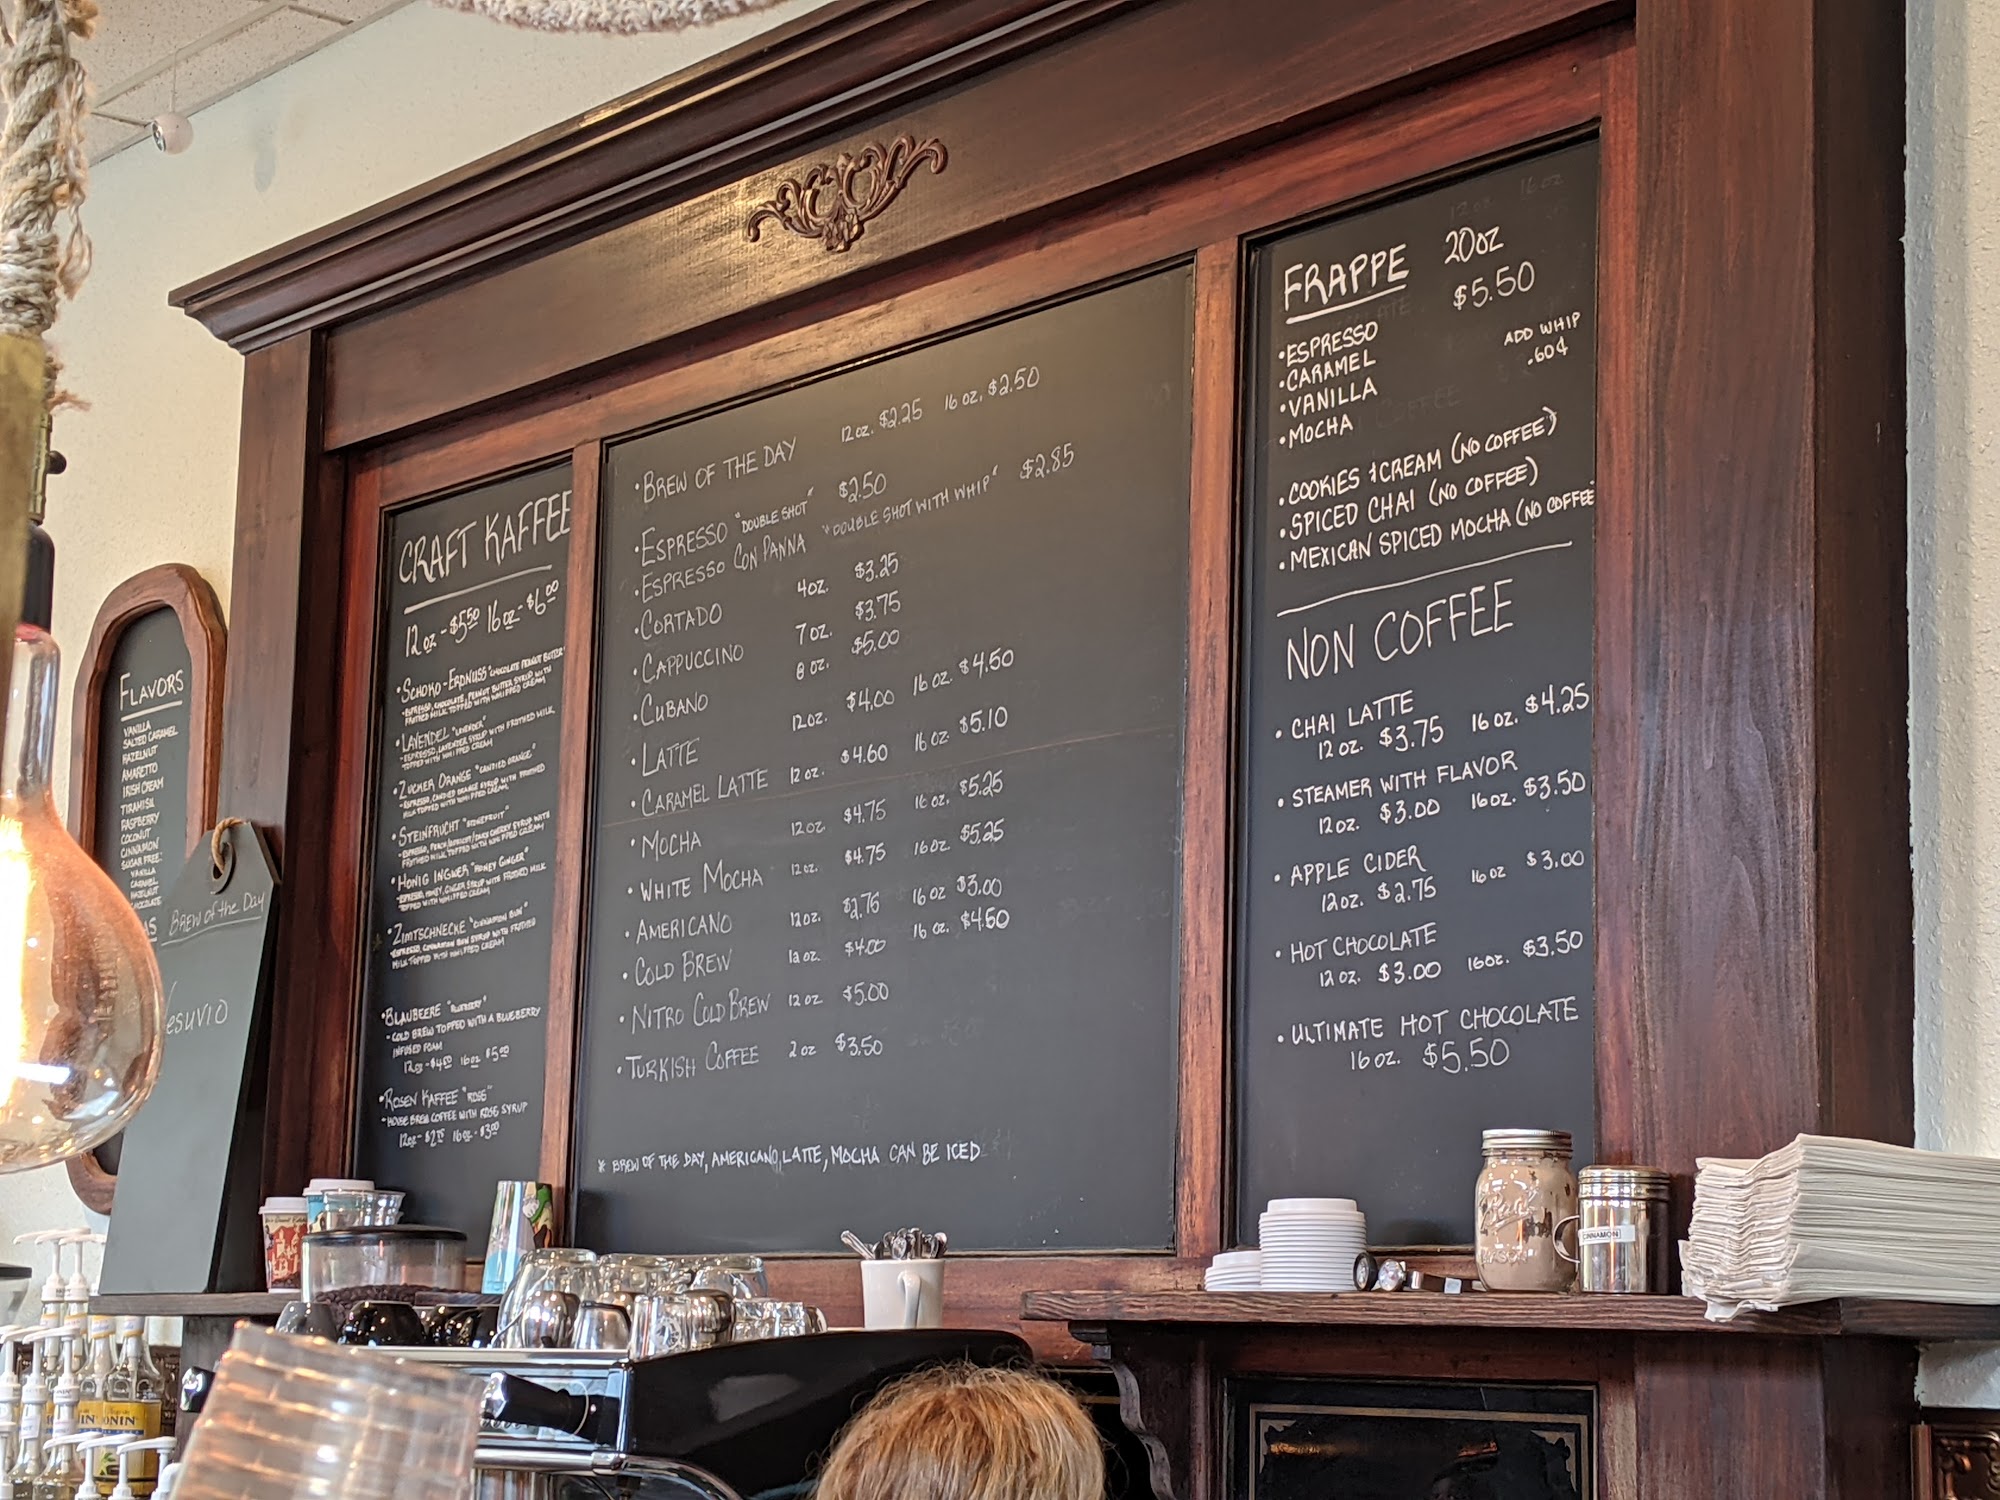 FLAVORS
VANILLA
SALTED CARAMEL
HAZELNUT
AMARETTO
IRISH CREAM
TIRAMISU
RASPBERRY
COCONUT
CINNAMON
SUGAR FREE:
VANILLA
CARAMEL
HAZELNUT
CHOCOLATE
AS
BREW of the DAY
VESUVIO
CRAFT KAFFEE
12oz - $5.50 16oz - $6.00
• SCHOKO-ERDNUSS "CHOCOLATE PEANUT BUTTER"
- ESPRESSO, CHOCOLATE, PEANUT BUTTER SYRUP WITH
FROTHED MILK TOPPED WITH WHIPPED CREAM
• LAVENDEL "LAVENDER"
- ESPRESSO, LAVENDER SYRUP WITH FROTHED MILK,
TOPPED WITH WHIPPED CREAM
• ZUCKER ORANGE "CANDIED ORANGE"
- ESPRESSO, CANDIED ORANGE SYRUP WITH FROTHED
MILK TOPPED WITH WHIPPED CREAM
• STEINFRUCHT "STONEFRUIT"
- ESPRESSO, PEACH/APRICOT/DARK CHERRY SYRUP WITH
FROTHED MILK TOPPED WITH WHIPPED CREAM
• HONIG INGWER "HONEY GINGER"
- ESPRESSO, HONEY, GINGER SYRUP WITH FROTHED MILK
TOPPED WITH WHIPPED CREAM
• ZIMTSCHNECKE "CINNAMON BUN"
- ESPRESSO, CINNAMON BUN SYRUP WITH FROTHED
MILK TOPPED WITH WHIPPED CREAM
• BLAUBEERE "BLUEBERRY"
- COLD BREW TOPPED WITH A BLUEBERRY
INFUSED FOAM
12oz - $4.50 16oz $5.00
• ROSEN KAFFEE "ROSE"
- HOUSE BREW COFFEE WITH ROSE SYRUP
12oz - $2.75 16oz - $3.00
• BREW OF THE DAY 12oz. $2.25 16 oz. $2.50
• ESPRESSO "DOUBLE SHOT" $2.50
• ESPRESSO CON PANNA "DOUBLE SHOT WITH WHIP" $2.85
• CORTADO 4oz. $3.25
• CAPPUCCINO 7 oz. $3.75
• CUBANO 8 oz. $5.00
• LATTE 12oz. $4.00 16 oz. $4.50
• CARAMEL LATTE 12 oz. $4.60 16 oz. $5.10
• MOCHA 12oz. $4.75 16 oz. $5.25
• WHITE MOCHA 12oz. $4.75 16oz. $5.25
• AMERICANO 12oz. $2.75 16 oz $3.00
• COLD BREW 12 oz. $4.00 16 oz. $4.50
• NITRO COLD BREW 12 oz $5.00
• TURKISH COFFEE 2 oz $3.50
* BREW OF THE DAY, AMERICANO, LATTE, MOCHA CAN BE ICED
FRAPPE 20oz
$5.50
• ESPRESSO
• CARAMEL
• VANILLA
• MOCHA
ADD WHIP
.60¢
• COOKIES & CREAM (NO COFFEE)
• SPICED CHAI (NO COFFEE)
• MEXICAN SPICED MOCHA (NO COFFEE
NON COFFEE
• CHAI LATTE
12 oz. $3.75 16 oz. $4.25
• STEAMER WITH FLAVOR
12oz. $3.00 16oz. $3.50
• APPLE CIDER
12oz. $2.75 16 oz $3.00
• HOT CHOCOLATE
12 oz. $3.00 16oz. $3.50
• ULTIMATE HOT CHOCOLATE
16 oz. $5.50
CINNAMON